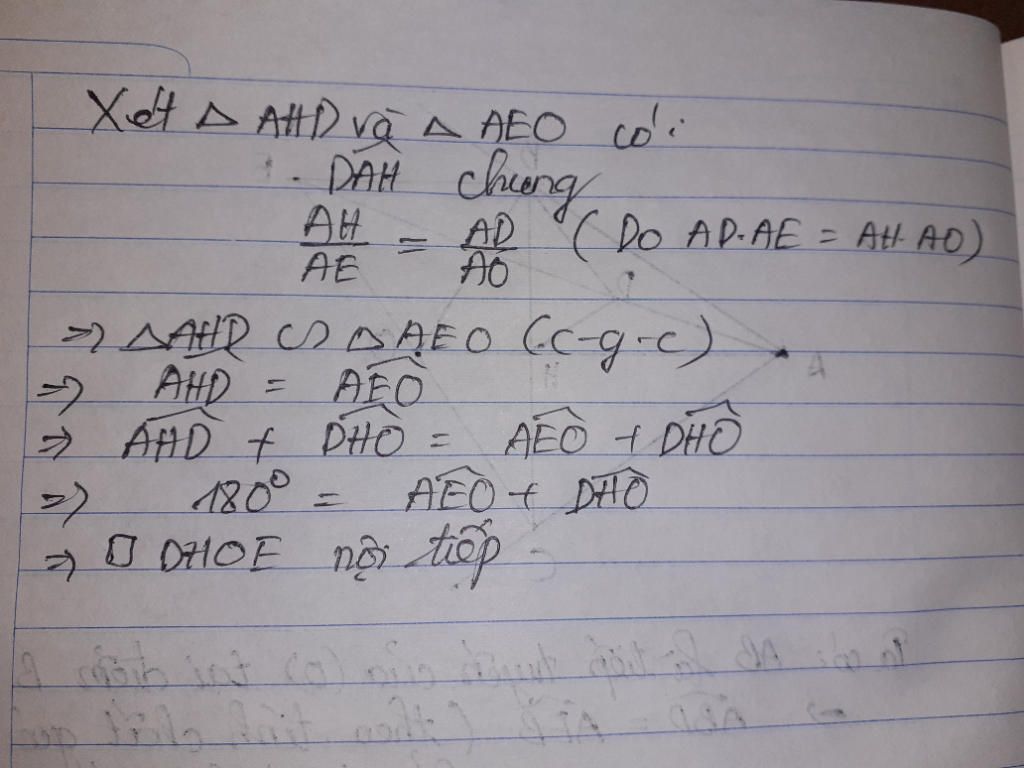 Xét △ AHD và △ AEO có:
. \widehat{DAH} chung
\frac{AH}{AE} = \frac{AD}{AO} ( Do AD.AE = AH.AO)
=> △AHD ∽ △AEO (c-g-c)
=> \widehat{AHD} = \widehat{AEO}
=> \widehat{AHD} + \widehat{DHO} = \widehat{AEO} + \widehat{DHO}
=> 180° = \widehat{AEO} + \widehat{DHO}
=> □ DHOE nội tiếp